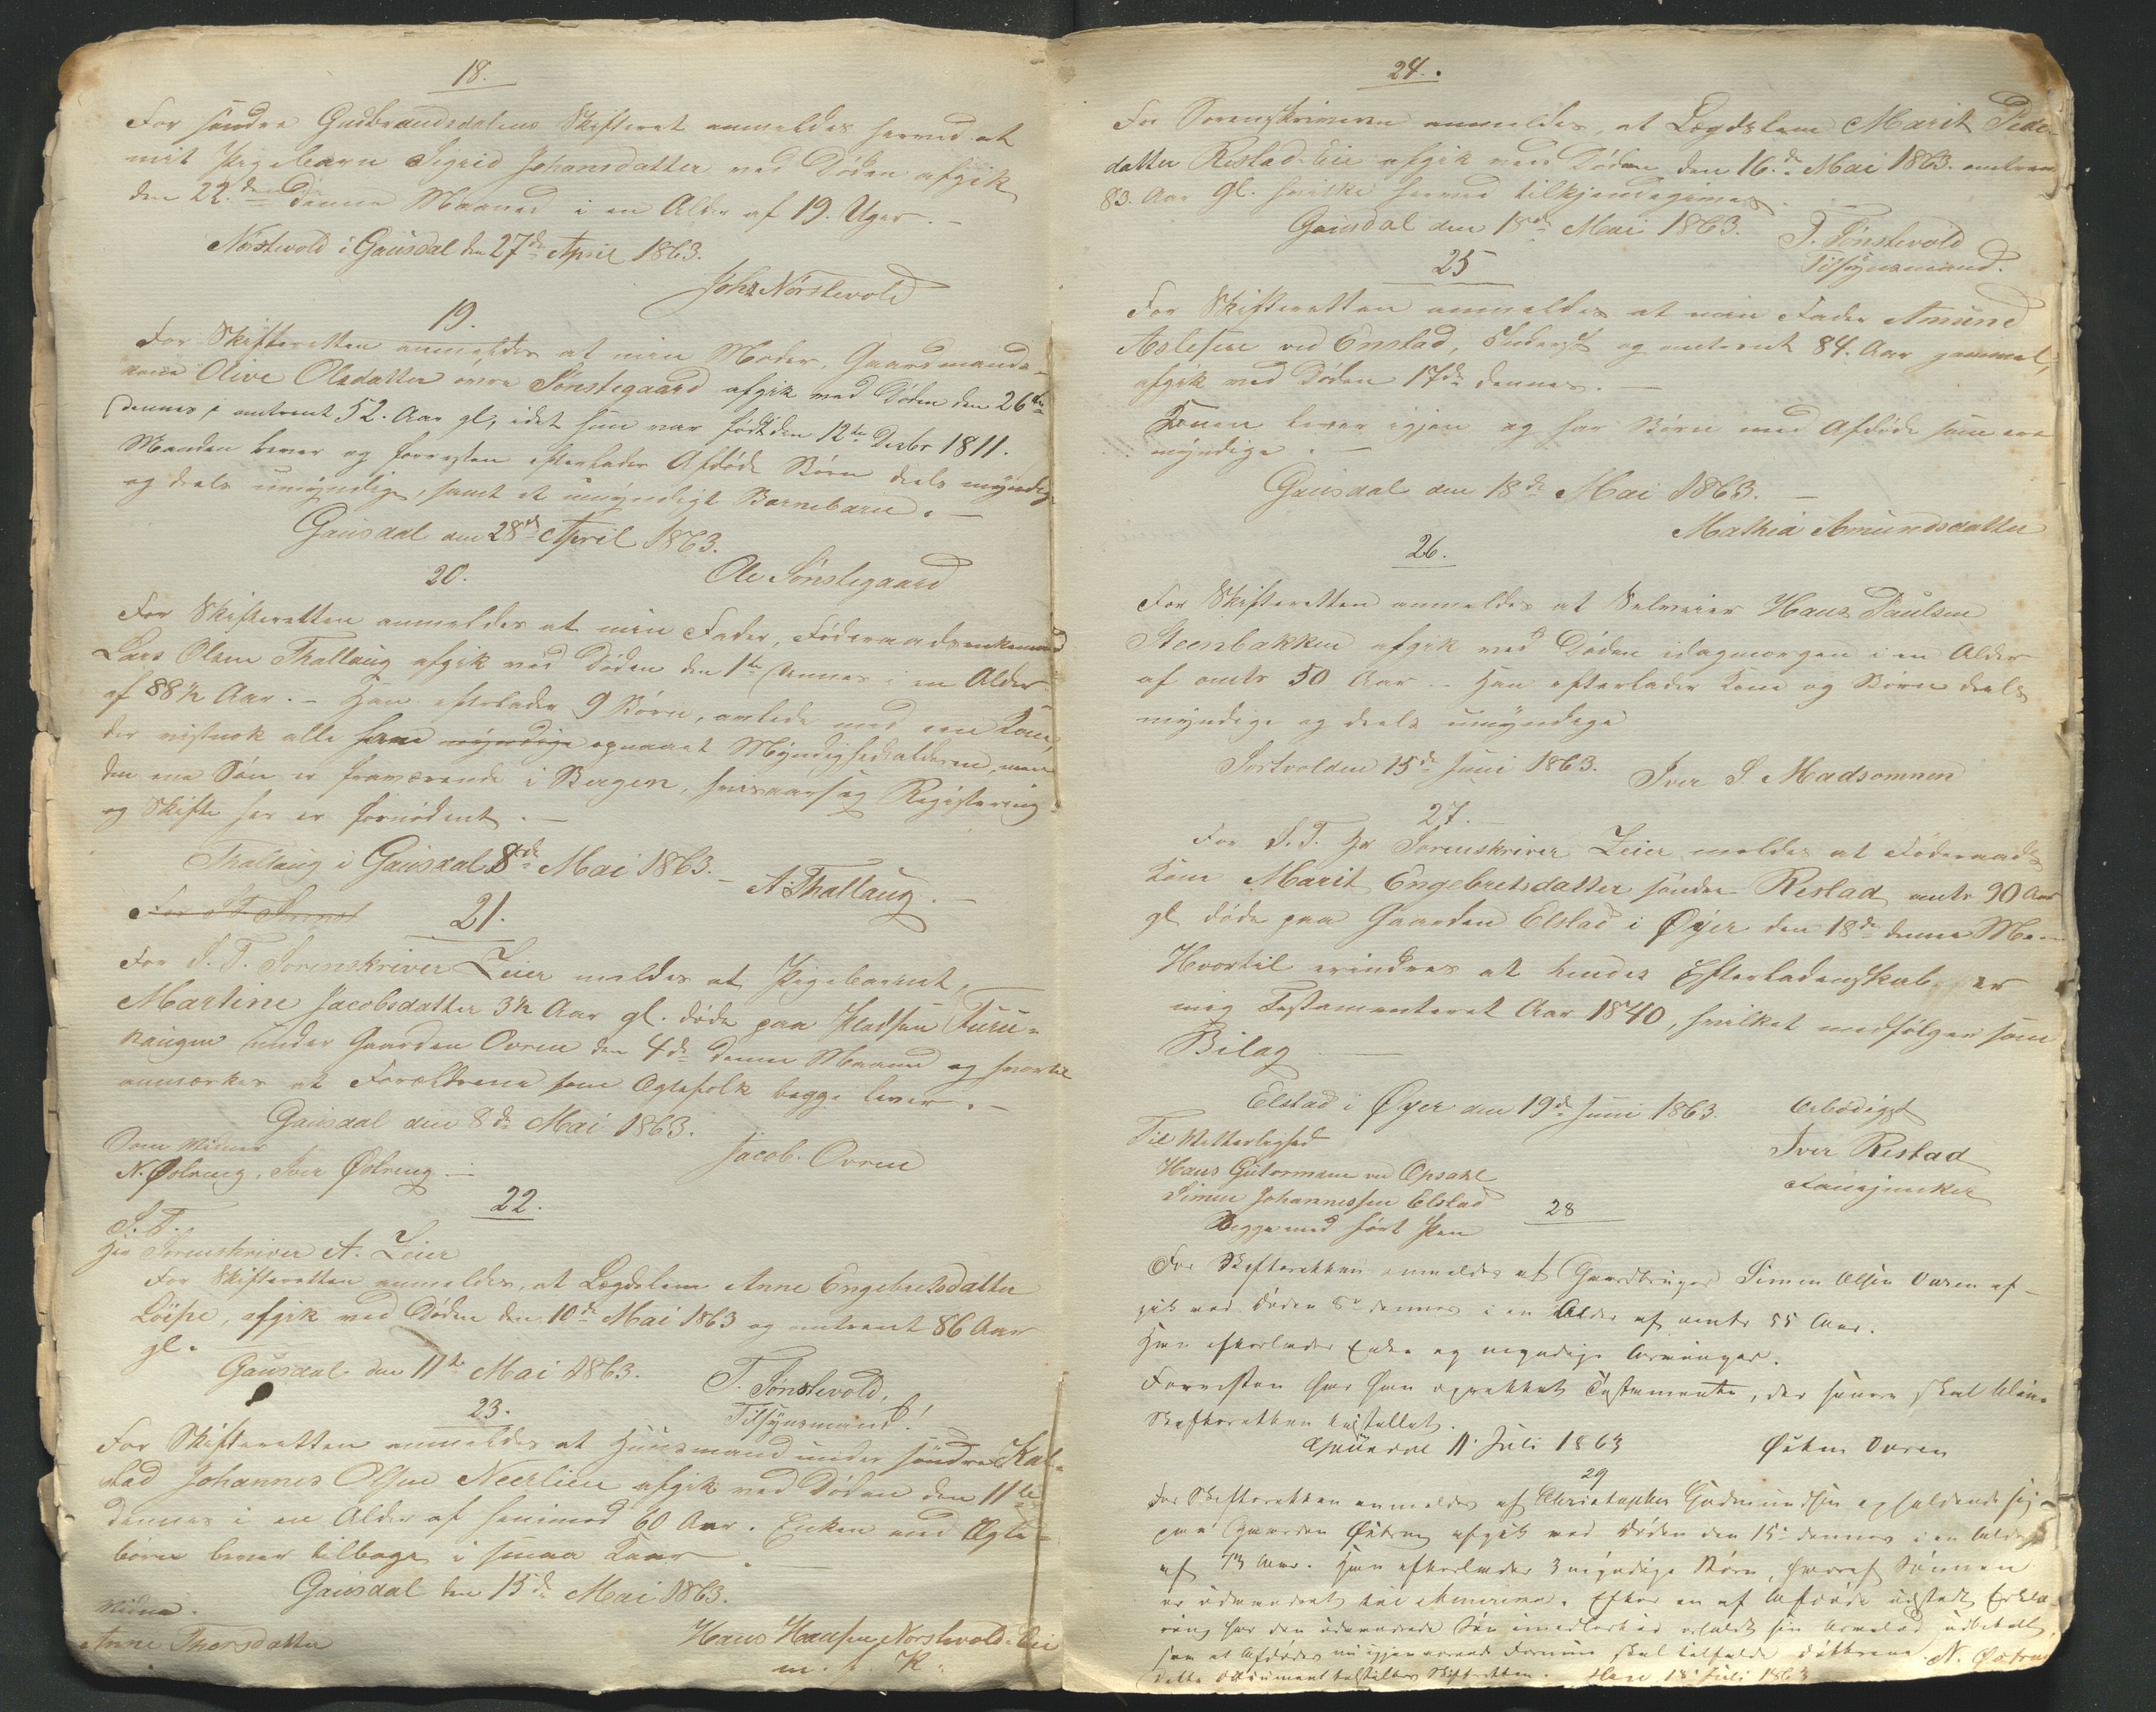 18.
For søndre Gudbrandsdalens Skifteret anmeldes herved at
mit Pigebarn Sigrid Johansdatter ved Døden afgik
den 22.de denne Maaned i en Alder af 19. Uger. –
Nørstevold i Gausdal den 27de April 1863.
Joh: Nørstevold
19.
For Skifteretten anmeldes at min Moder, Gaardmands-
kone Olive Olsdatter øvre Sønstegaard afgik ved Døden den 26de
dennes, omtrent 52. Aar gl, idet hun var født den 12te Decbr 1811.
Manden lever og forresten efterlader Afdøde Børn deels myndige
og deels umyndige, samt et umyndigt Barnebarn. –
Gausdal den 28de April 1863.
Ole Sønstegaard
20.
For Skifteretten anmeldes at min Fader, Føderaadsenkemand
Lars Olsen Thallaug afgik ved Døden den 1te dennes i en Alder
af 88 1/2 Aar. – Han efterlader 9 Børn, avlede med een Kone,
der vistnok alle have myndige opnaaet Myndighedsalderen, men
den ene Søn er fraværende i Bergen, hvisaarsag Registrering
og Skifte her er fornødent. –
Thallaug i Gausdal 8de Mai 1863. –
A. Thallaug. –
For S. T. Sorensk
21.
For S. T. Sorenskriver Zeier meldes at Pigebarnet,
Martine Jacobsdatter 3 1/2 Aar gl. døde paa Pladsen Furu-
haugen under Gaarden Ovren den 4de denne Maaned og hvortil
anmærkes at Forældrene som Ægtefolk begge lever. –
Gausdal den 8de Mai 1863.
Jacob. Ovren
Som Vidner
N. Østreng. Iver Østreng –
22.
S. T.,
Hr Sorenskriver A. Zeier
For Skifteretten anmeldes, at Lægdslem Anne Engebretsdatter
Løipe, afgik ved Døden den 10de Mai 1863 og omtrent 86 Aar
gl.
Gausdal den 11te Mai 1863.
T. Tønstevold,
Tilsynsmand!
23.
For Skifteretten anmeldes at Huusmand under søndre Kal-
stad Johannes Olsen Neerlien afgik ved Døden den 11te
dennes i en Alder af henimod 60 Aar. Enken med Ægte-
børn lever tilbage i smaa Kaar. –
Gausdal den 15de Mai 1863.
Vidne.
Anne Thorsdatter
Hans Hansen Norstevold-Eie
m. f. P.
24.
For Sorenskriveren anmeldes, at Lægdslem Marit Peders-
datter Restad-Eie afgik ved Døden den 16.de Mai 1863. omtrent
83. Aar gl. hvilke herved tilkjendegives.
Gausdal den 18de Mai 1863.
T. Tønstevold
Tilsynsmand.
25
For Skifteretten anmeldes at min Fader Amund
Aslesen ved Enstad, Inderst og omtrent 84. Aar gammel,
afgik ved Døden 17de dennes. –
Konen lever igjen og har Børn med Afdøde som ere
myndige. –
Gausdal den 18de Mai 1863. –
Mathea Amundsdatter
26.
For Skifteretten anmeldes at Selveier Hans Paulsen
Steenbakken afgik ved Døden idagmorgen i en Alder
af omtr 50 Aar. – Han efterlader Kone og Børn deels
myndige og deels umyndige
15de Juni 1863.
Iver S. Madsommen
27.
For S. T. Hr Sorenskriver Zeier meldes at Føderaads
Kone Marit Engebretsdatter søndre Restad omtr 90 Aar
gl døde paa Gaarden Elstad i Øyer den 18de denne M.–
Hvortil erindres at hendes Efterladenskab er
mig Testamenteret Aar 1840, hvilket medfølger som
Bilag –
Elstad i Øyer den 19de Juni 1863.
Ærbødigst
Iver Restad
Fanejunker
Til Vitterlighed
Hans Guttormsen ved Opsahl
Simen Johannessen Elstad
Begge med ført Pen
28
For Skifteretten anmeldes at Gaardbruger Simen Olsen Ovren af-
gik ved Døden 8de dennes i en Alder af omtr 55 Aar.
Han efterlader Enke og myndige Arvinger.
Forresten har han oprettet Testamente, der senere skal blive
Skifteretten tilstillet.
Gausdal 11. Juli 1863
Østen Ovren
29
For Skifteretten anmeldes at Christopher Gudmundsen opholdende sig
paa Gaarden Østreng afgik ved Døden den 15. dennes i en Alder
af 73 Aar. Han efterlader 3 myndige Børn, hvoraf Sønnen
er udvandret til Amerika. Efter en af Afdøde udstedt Erklæ-
ring har den udvandrede Søn imedlertid erholdt sin Arvelod udbetalt,
saa at Afdødes nu igjenværende Formue skal tilfalde Døttrene
Dette Document tilstilles Skifteretten. 18. Juli 1863
N. Østreng